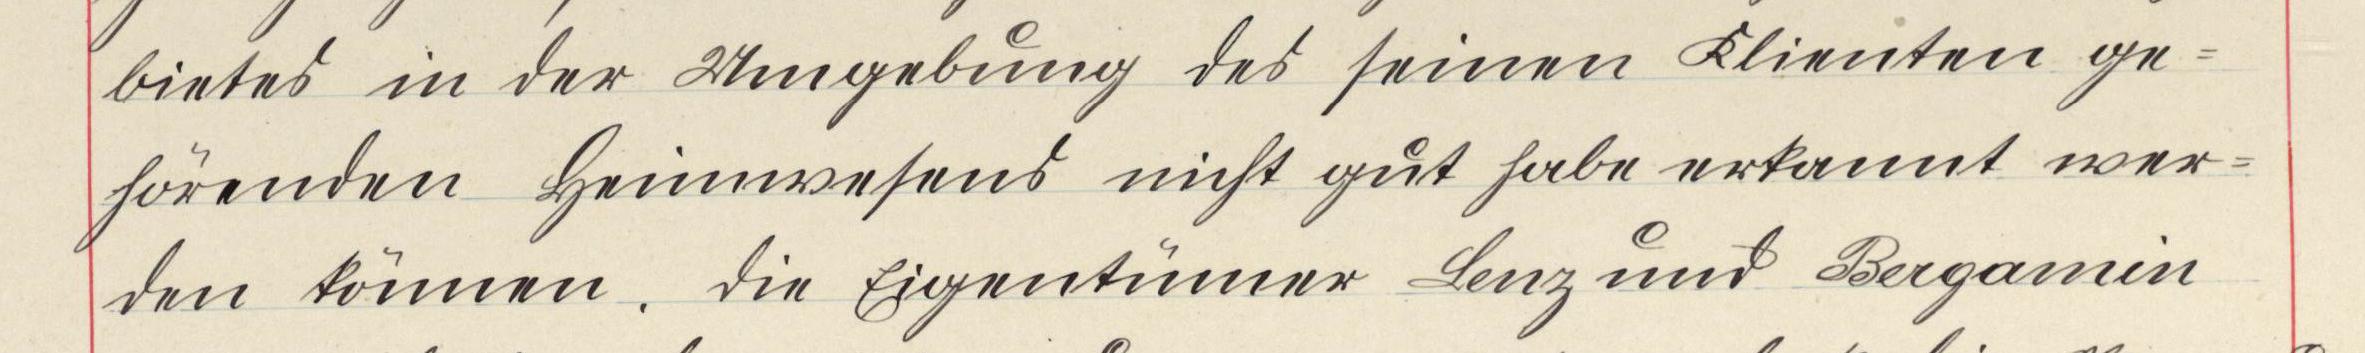 bietes in der Umgebung des seinen Klienten ge=
hörenden Heimwesens nicht gut habe erkannt wer=
den können. Die Eigentümer Lenz und Bergamin